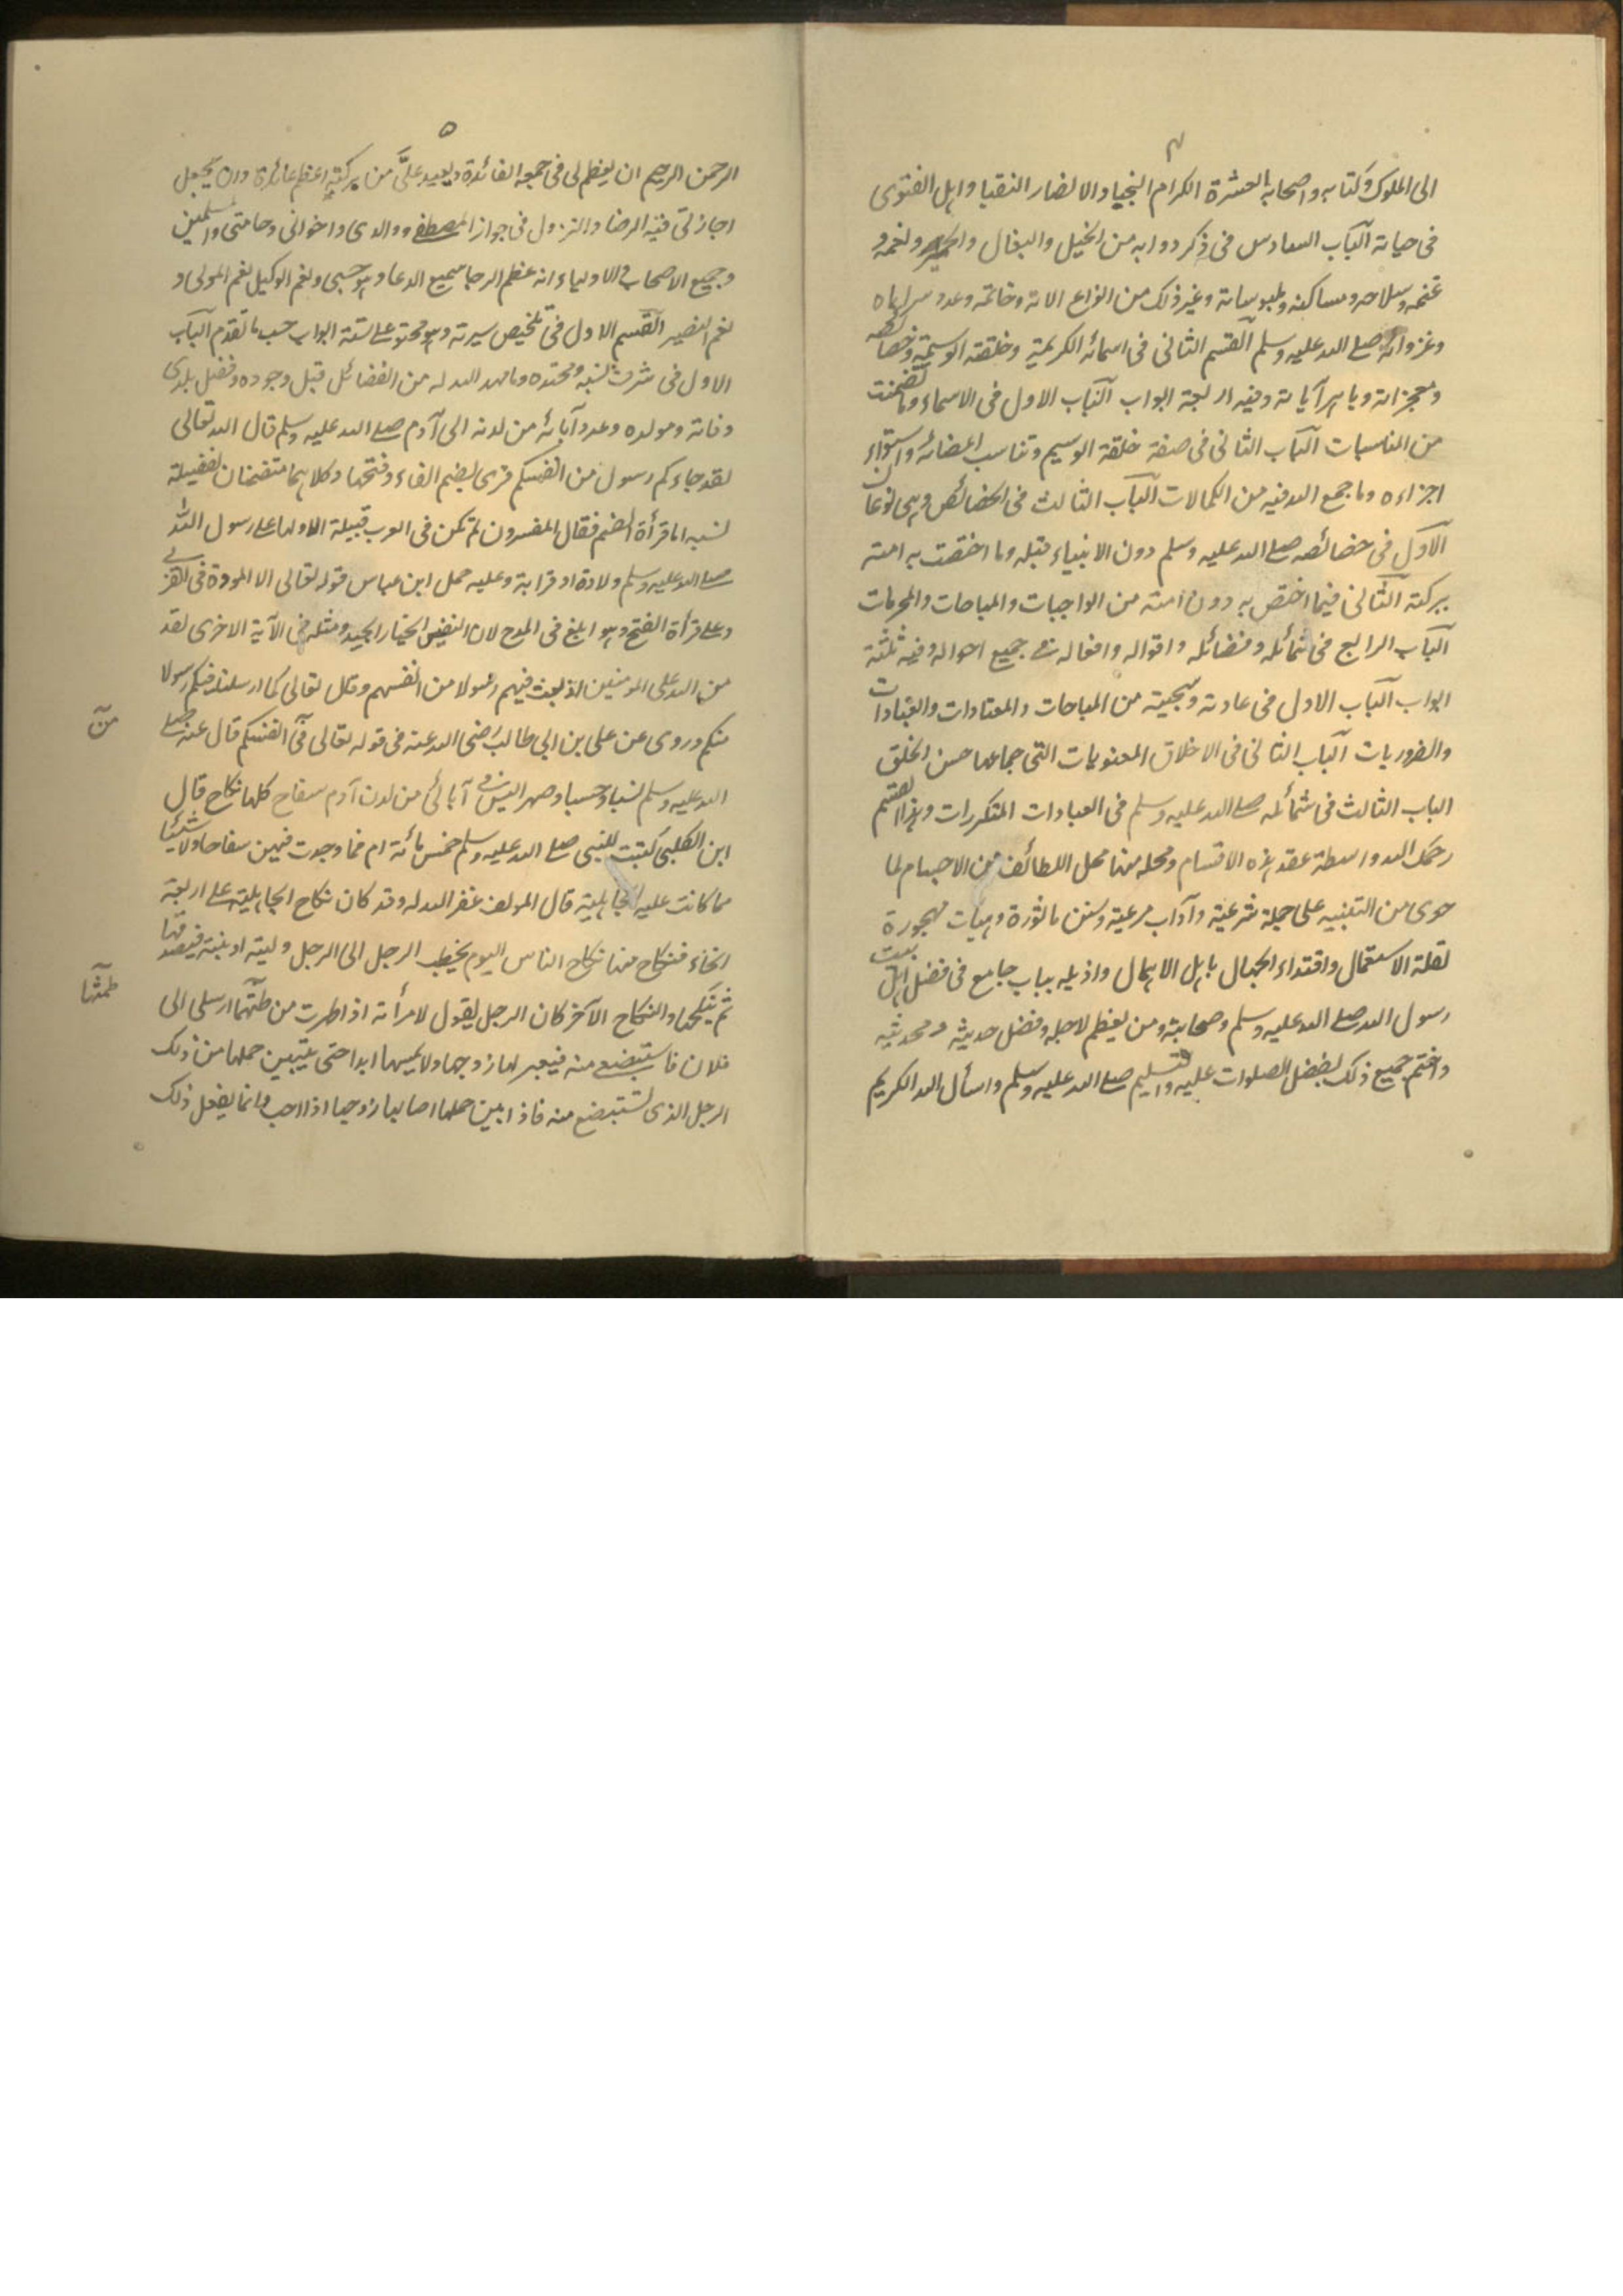 ٤
الى الملوك وكتابه واصحابه العشرة الكرام النجبا والانصار النقبا واهل الفتوى
فى حياته الباب السادس فى ذكر دوابه من الخيل والبغال والحمير ونعمه و
غنمه وسلاحه ومساكنه وملبوساته وغير ذلك من انواع الاته وخاتمه وعدد سراياه
وغزواته صلى الله عليه وسلم القسم الثانى فى اسمائه الكريمة وخلقته الوسيمة وخصائصه
ومعجزاته وباهر آياته وفيه اربعة ابواب الباب الاول فى الاسماء وما تضمنت
من المناسبات الباب الثانى فى صفة خلقة الوسيم وتناسب اعضائه واستواء
اجزاءه وما جمع الله فيه من الكمالات الباب الثالث فى الخصائص وهى نوعان
الاول فى خصائصه صلى الله عليه وسلم دون الانبياء قبله وما اختصت به امته
ببركته الثانى فيما اختص به دون امته من الواجبات والمباحات والمحرمات
الباب الرابع فى شمائله وفضائله واقواله وافعاله فى جميع احواله وفيه ثلثة
ابواب الباب الاول فى عادته وسجيته من المباحات والمعتادات والعبادات
والضروريات الباب الثانى فى الاخلاق المعنويات التى جماعها حسن الخلق
الباب الثالث فى شمائله صلى الله عليه وسلم فى العبادات المتكررات وهذا القسم
رحمك الله واسطة عقد هذه الاقسام ومحله منها محل اللطائف من الاجسام لما
حوى من التنبيه على جملة شرعية وآداب مرعية وسنن ماثورة وهيات مهجورة
لقلة الاستعمال واقتداء الجهال باهل الاهمال واذيله بباب جامع فى فضل اهل بيت
رسول الله صلى الله عليه وسلم وصحابته ومن يعظم لاجله وفضل حديثه ومحدثيه
واختم جميع ذلك بفضل الصلوات عليه والتسليم صلى الله عليه وسلم واسأل الله الكريم
٥
الرحمن الرحيم ان يعظم لى فى جمعه الفائدة ويعيد علىّ من بركته اعظم عائدة وان يجعل
اجازتى فيه الرضا والنزول فى جواز المصطفى ووالدى واخوانى وحامتى والمسلمين
وجميع الاصحاب والاولياء انه عظم الرجا سميع الدعا وهو حسبى ونعم الوكيل نعم المولى و
نعم النصير القسم الاول فى تلخيص سيرته وهو محتو على ستة ابواب حسب ما تقدم الباب
الاول فى شرف نسبه ومحتده وما مهد الله له من الفضائل قبل وجوده وفضل بلدى
وفاته ومولده وعدد آبائه من لدنه الى آدم صلى الله عليه وسلم قال الله تعالى
لقد جاءكم رسول من انفسكم قرى بضم الفاء وفتحها وكلاهما متضمنان لفضيلة
نسبه اما قرأة الضم فقال المفسرون لم تكن فى العرب قبيلة الا ولها على رسول الله
صلى الله عليه وسلم ولادة او قرابة وعليه حمل ابن عباس قوله تعالى الا المودة فى القربى
وعلى قرأة الفتح وهو ابلغ فى المدح لان النفيس الخيار الجيد ومثله فى الآية الاخرى لقد
من الله على المومنين اذ بعث فيهم رسولا من انفسهم وقال تعالى كما ارسلنا فيكم رسولا
منكم وروى عن على بن ابى طالب رضى الله عنه فى قوله تعالى من انفسكم قال عنه صلى
من
الله عليه وسلم نسبا وحسبا وصهرا ليس فى آبائى من لدن آدم سفاح كلها نكاح قال
ابن الكلبى كتبت للنبى صلى الله عليه وسلم خمس مائة ام فما وجدت فيهن سفاحا ولا شيئا
مما كانت عليه الجاهلية قال المولف غفر الله له وقد كان نكاح الجاهلية على اربعة
انحاء فنكاح منها نكاح الناس اليوم يخطب الرجل الى الرجل وليته او بنته فيصدقها
ثم ينكحها والنكاح الآخر كان الرجل يقول لامرأته اذا طهرت من طمثها ارسلى الى
طمثها
فلان فاستبضعى منه فيعبر لها زوجها ولا يمسها ابدا حتى يتبين حملها من ذلك
الرجل الذى تستبضع منه فاذا تبين حملها اصابها زوجها اذا احب وانما يفعل ذلك